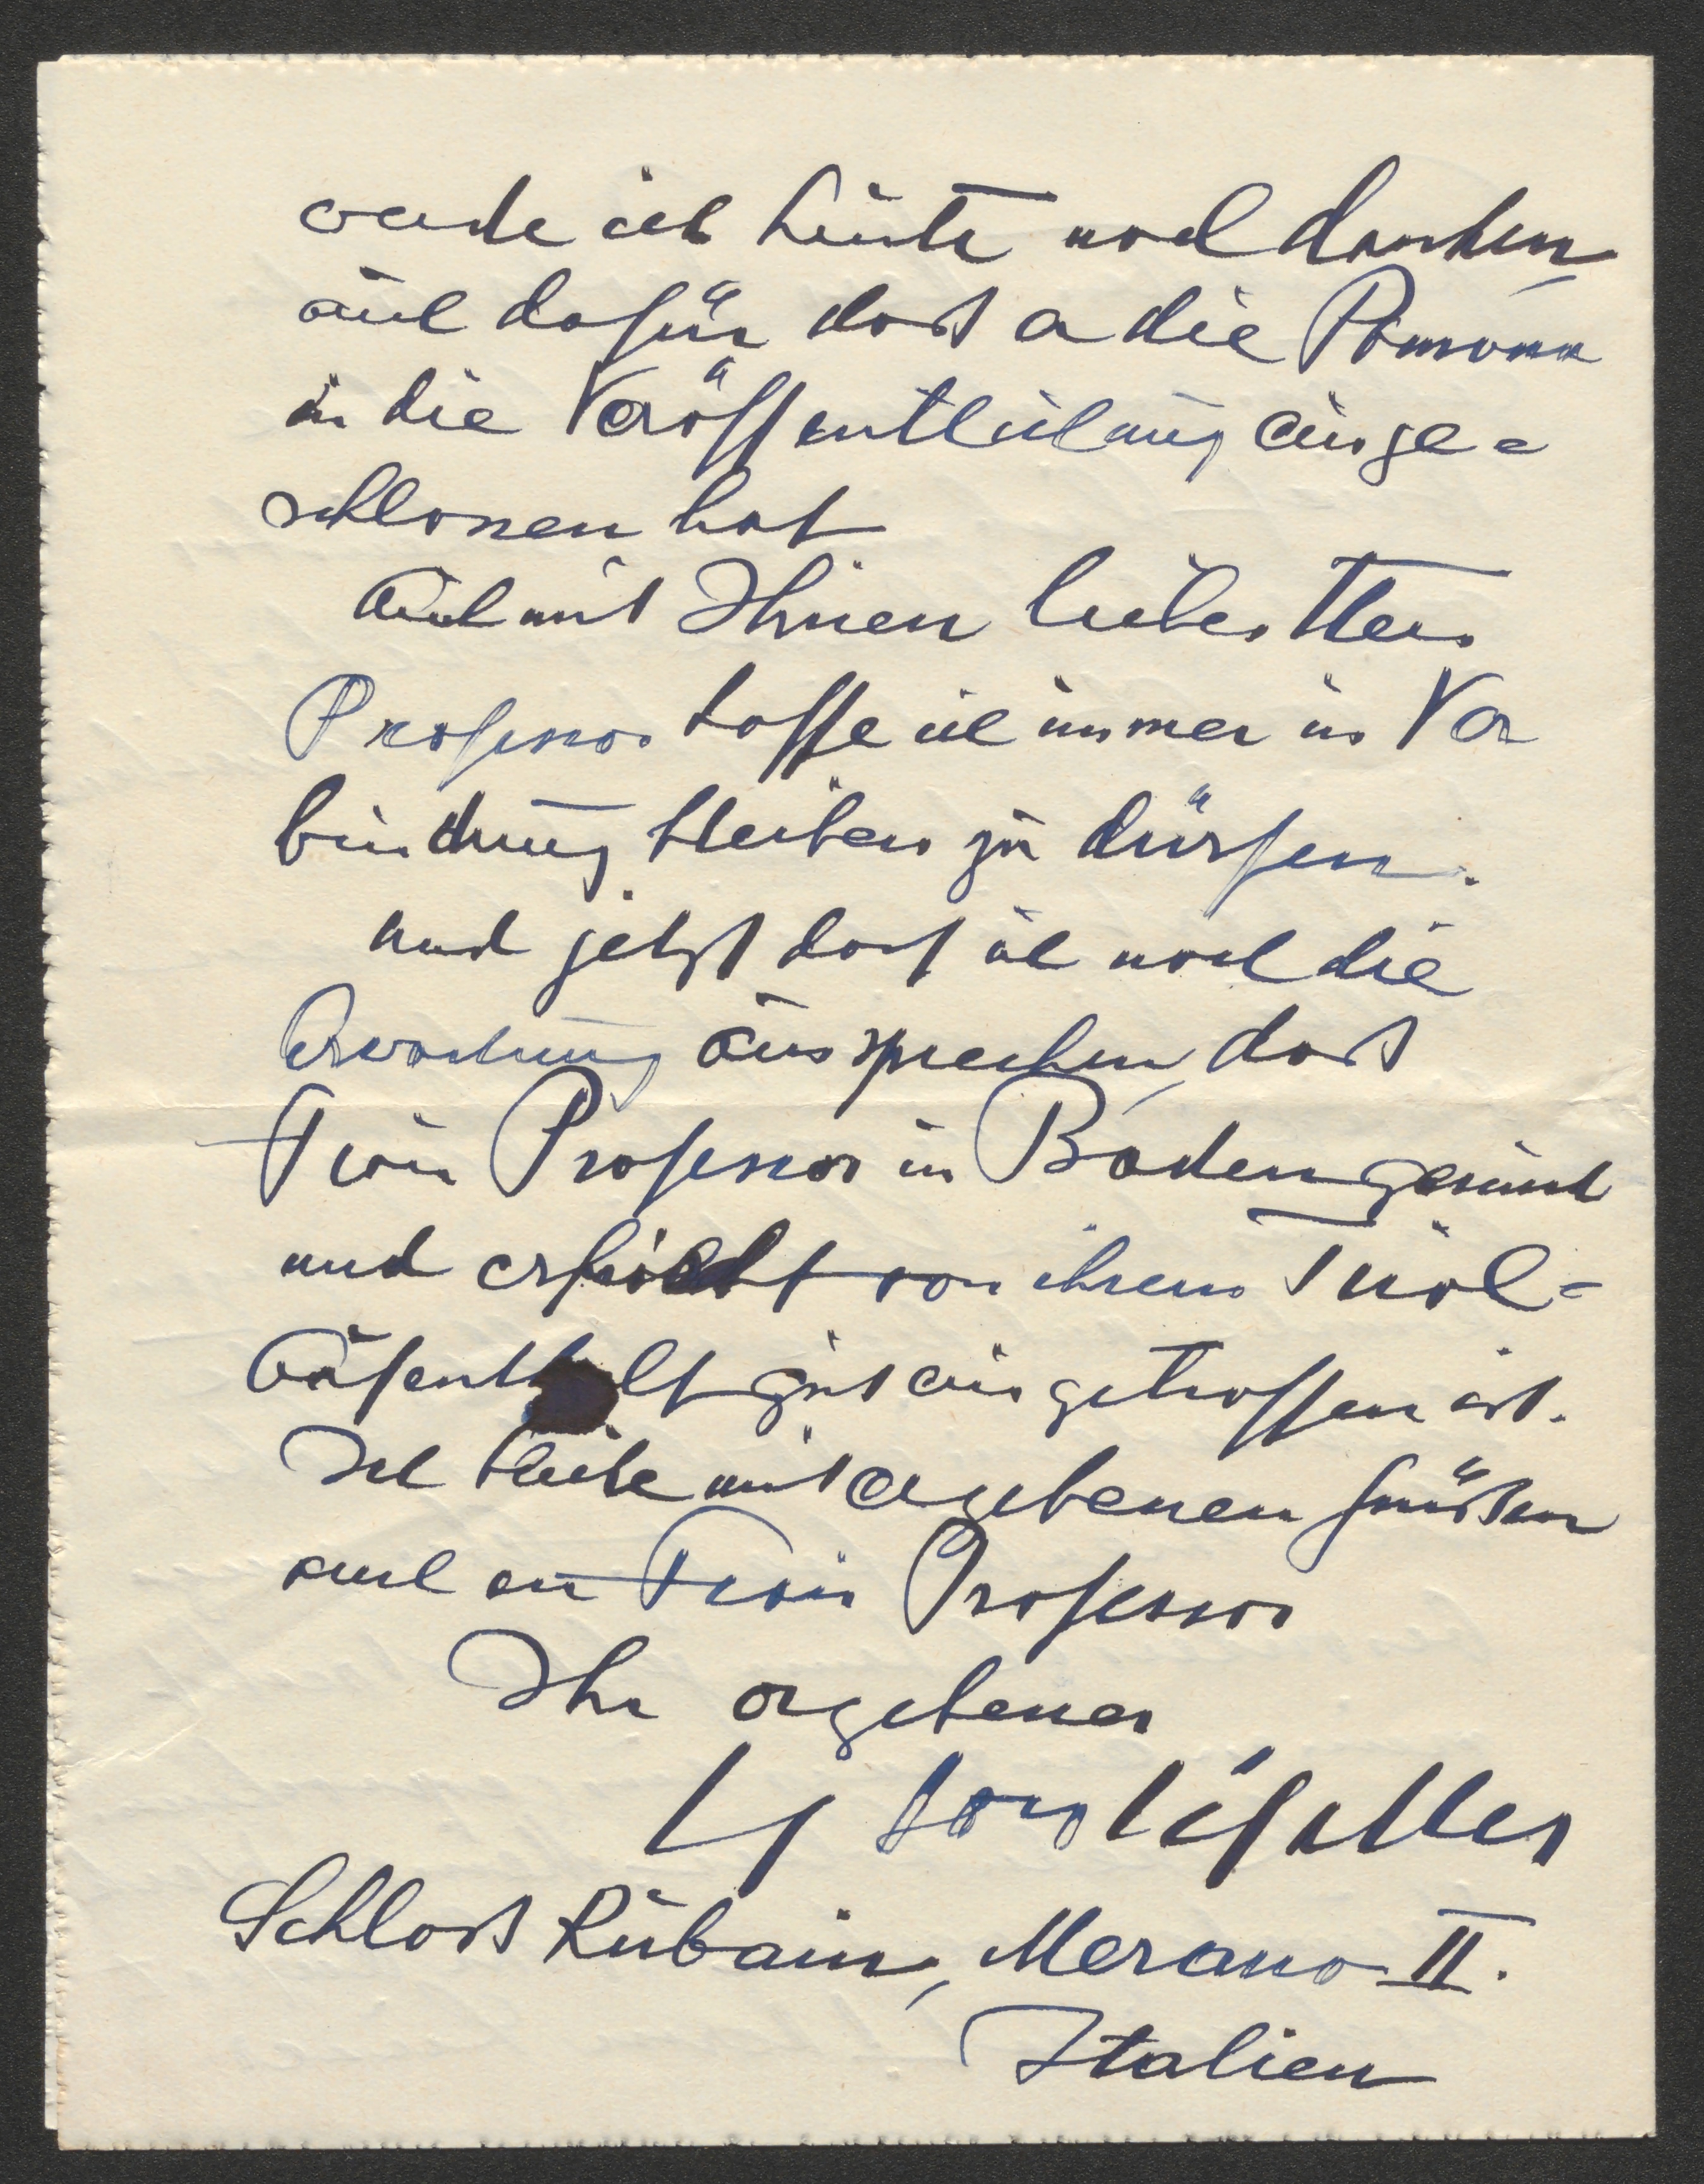 werde ich heute noch danken,
auch dafür, dass er die Pomona
in die Veröffentlichung einge=
schlossen hat
Auch mit Ihnen lieber Herr
Professor hoffe ich immer in Ver
bindung bleiben zu dürfen.
und jetzt darf ich noch die
Erwartung aussprechen, dass
Frau Professor in Baden gesund
und erfrischt von ihrem Tirol=
aufenthalt gut eingetroffen ist.
Ich bleibe mit ergebenen Grüßen
auch an Frau Professor
Ihr ergebener
Schloss Rubein, Merano II.
Italien